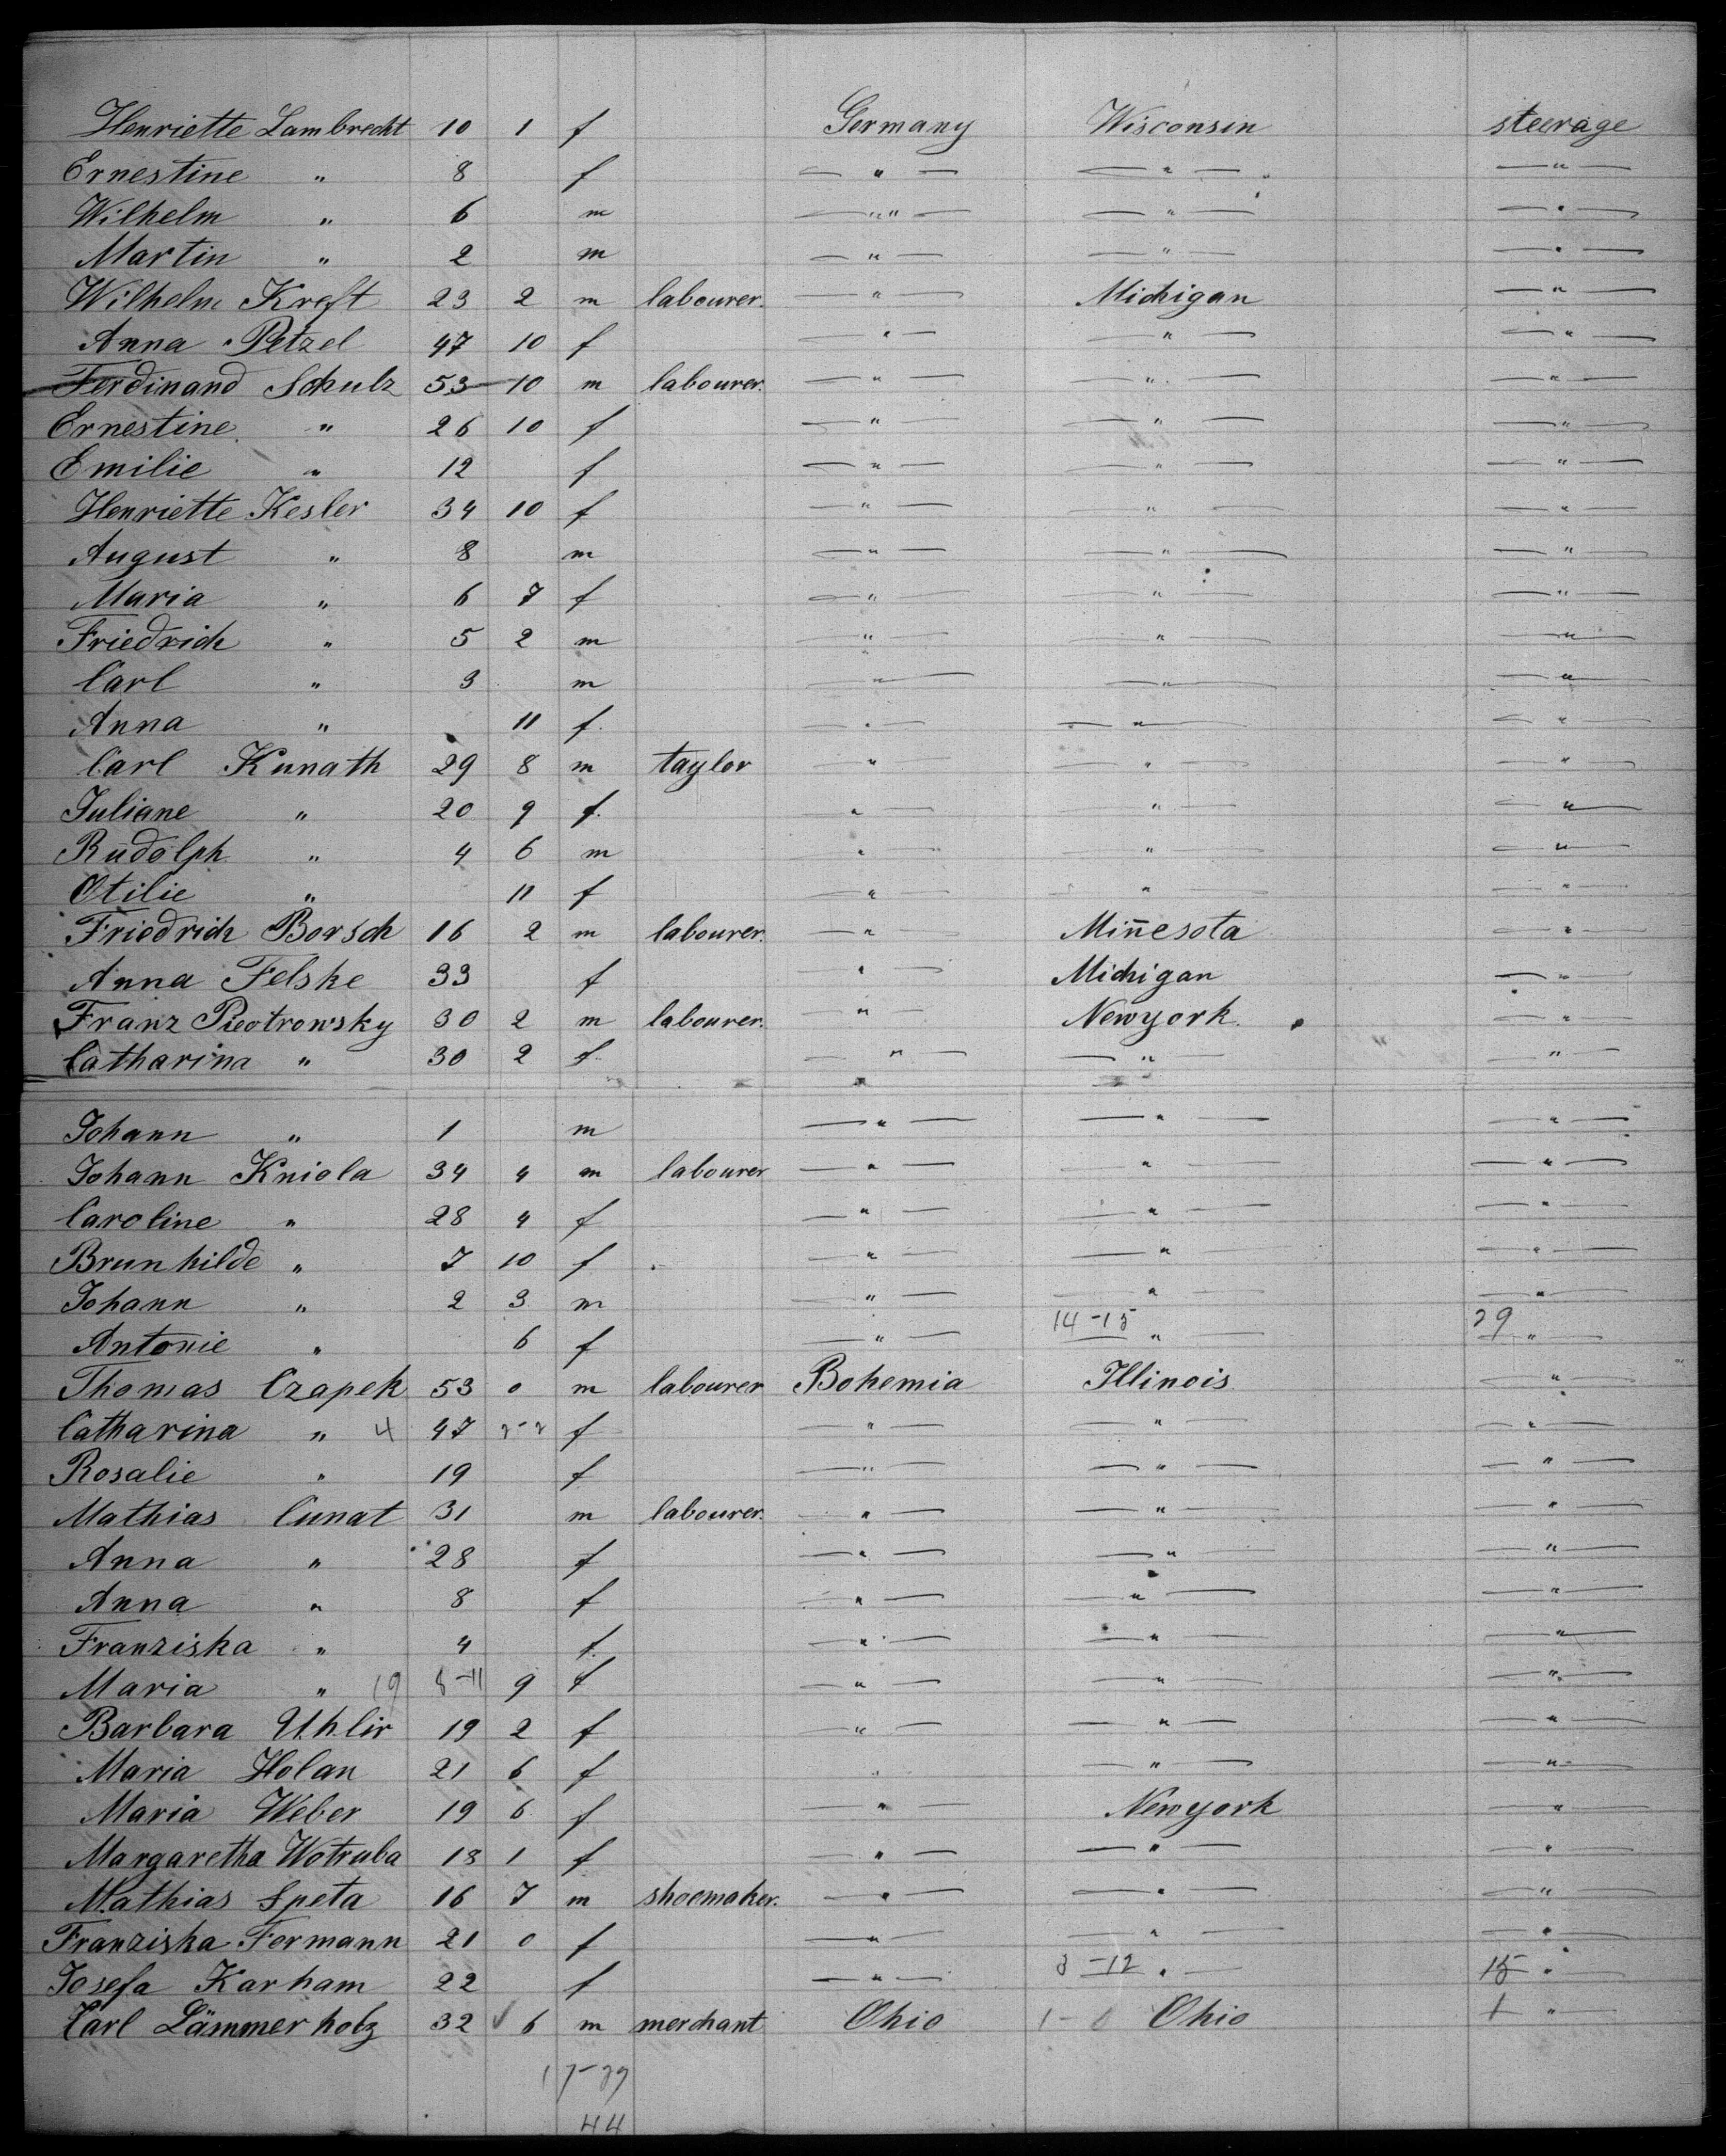 Henriette Lambrecht 10 1 f Germany Wisconsin steerage
Ernestine " 8 f " " "
Wilhelm " 6 m " " "
Martin " 2 m " " "
Wilhelm Kreft 23 2 m labourer. " Michigan "
Anna Petzel 47 10 f " " "
Ferdinand Schulz 53 10 m labourer. " " "
Ernestine " 26 10 f " " "
Emilie " 12 f " " "
Henriette Kesler 34 10 f " " "
August " 8 m " " "
Maria " 6 7 f " " "
Friedrich " 5 2 m " " "
Carl " 3 m " " "
Anna " 11 f " " "
Carl Kunath 29 8 m taylor " " "
Juliane " 20 9 f " " "
Rudolph " 4 6 m " " "
Otilie " 11 f " " "
Friedrich Borsch 16 2 m labourer. " Min̄esota "
Anna Felske 33 f " Michigan "
Franz Piotrowsky 30 2 m labourer. " Newyork "
Catharina " 30 2 f " " "
Johann " 1 m " " "
Johann Kniola 34 4 m labourer " " "
Caroline " 28 4 f " " "
Brunhilde " 7 10 f " " "
Johann " 2 3 m " " "
Antonie " 6 f " 14-15 " 29 "
Thomas Czapek 53 0 m labourer Bohemia Illinois "
Catharina " 4 47 f " " "
Rosalie " 19 f " " "
Mathias Cunat 31 m labourer. " " "
Anna " 28 f " " "
Anna " 8 f " " "
Franziska " 4 f " " "
Maria " 19 8-11 9 f " " "
Barbara Uhlir 19 2 f " " "
Maria Holan 21 6 f " " "
Maria Weber 19 6 f " Newyork "
Margaretha Wotruba 18 1 f " " "
Mathias Speta 16 7 m shoemaker. " " "
Franziska Fermann 21 0 f " " "
Josefa Karham 22 f " 3-12 " 15 "
Carl Lämmerholz 32 6 m merchant Ohio 1-0 Ohio 1 "
44